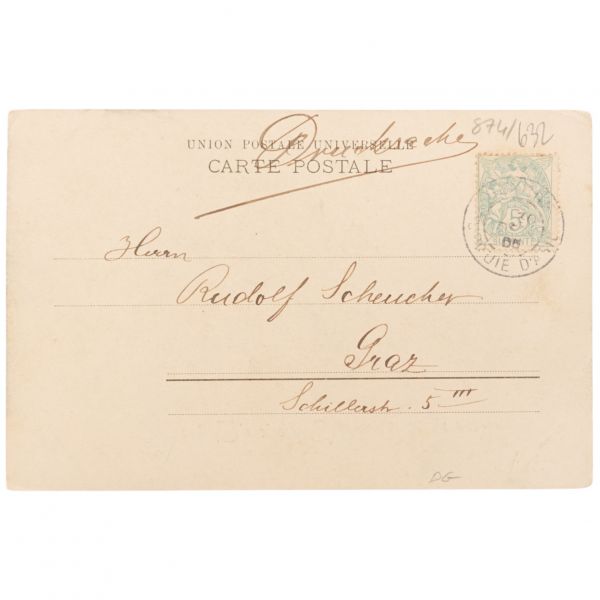 874/632
Drucksache
UNION POSTALE UNIVERSELLE
CARTE POSTALE
5
30
05
Herrn
Rudolf Scheucher
Graz
Schillerstr. 5 III
DG